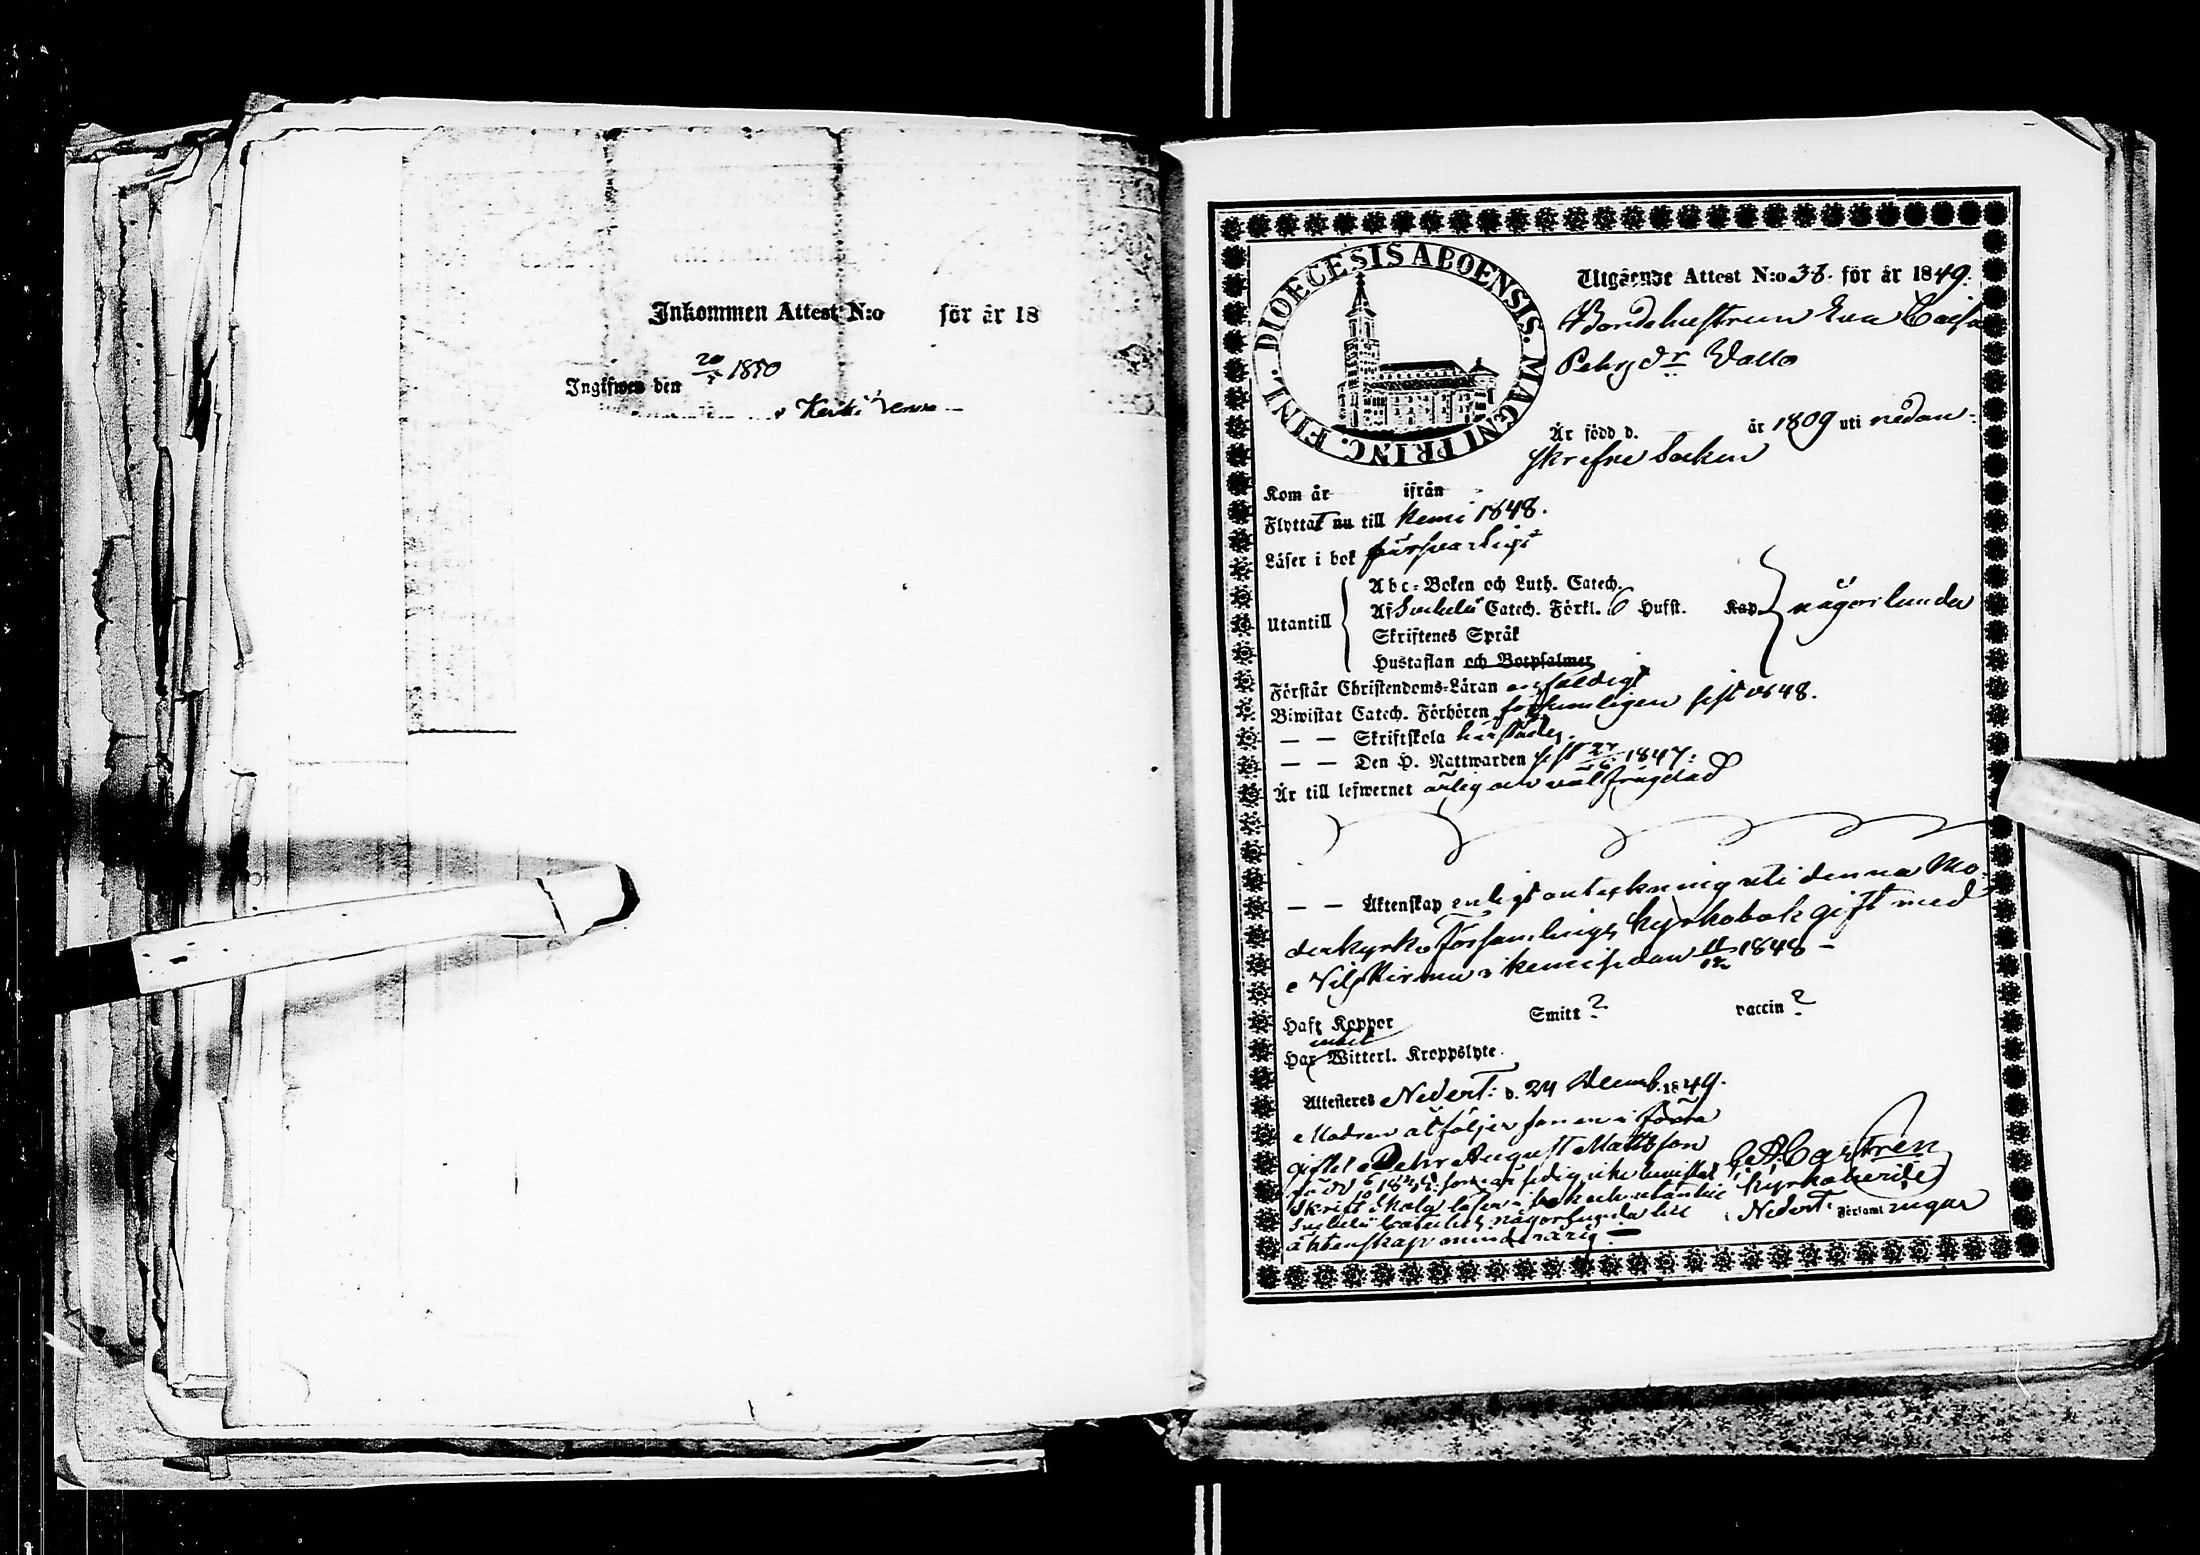 Inkommen Attest N:o för år 18
Ingifwen den 20/5 1850
DIOECESIS ABOENSIS. MAGNI PRINC. FINL.
Utgående Attest N:o 38. för år 1849.
Bondehustrun Eva Caisa
Pehrsdr Wallo
Är född d. år 1809 uti nedan-
skrefne Socken
Kom år ifrån
Flyttat nu till Kemi 1848.
Läser i bok försvarligt
Abc-Boken och Luth. Catech.
Utantill Af Svebelii Catech. Förkl. 6 Hufst. Kap. någorlunda
Skriftenes Språk
Hustaflan och Botpsalmer
Förstår Christendoms-Läran enfaldigt
Biwistat Catech. Förhören försumligen sist 1848.
— — Skriftskola härstädes.
— — Den H. Nattwarden sist 27/6 1847.
Är till lefwernet ärlig och välfrägdad
— — Äktenskap enligt anteckning uti denna Mo-
derkyrko Församlings Kyrkobok gift med
Nils i Kemi sedan 11/12 1848 —
Haft Koppor Smitt ? vaccin ?
Har Witterl. Kroppslyte.
Attesteras Nedert: d. 24 Decemb. 1849.
Modren åtföljer sonen i förra
giftet Pehr August Mattsson
Skrift Skola läser i bok och utantill
Svebelii Cateches någorlunda till
äktenskap minderårig. —
Castrén
Kyrkoherde
i Nedert. Församlingar